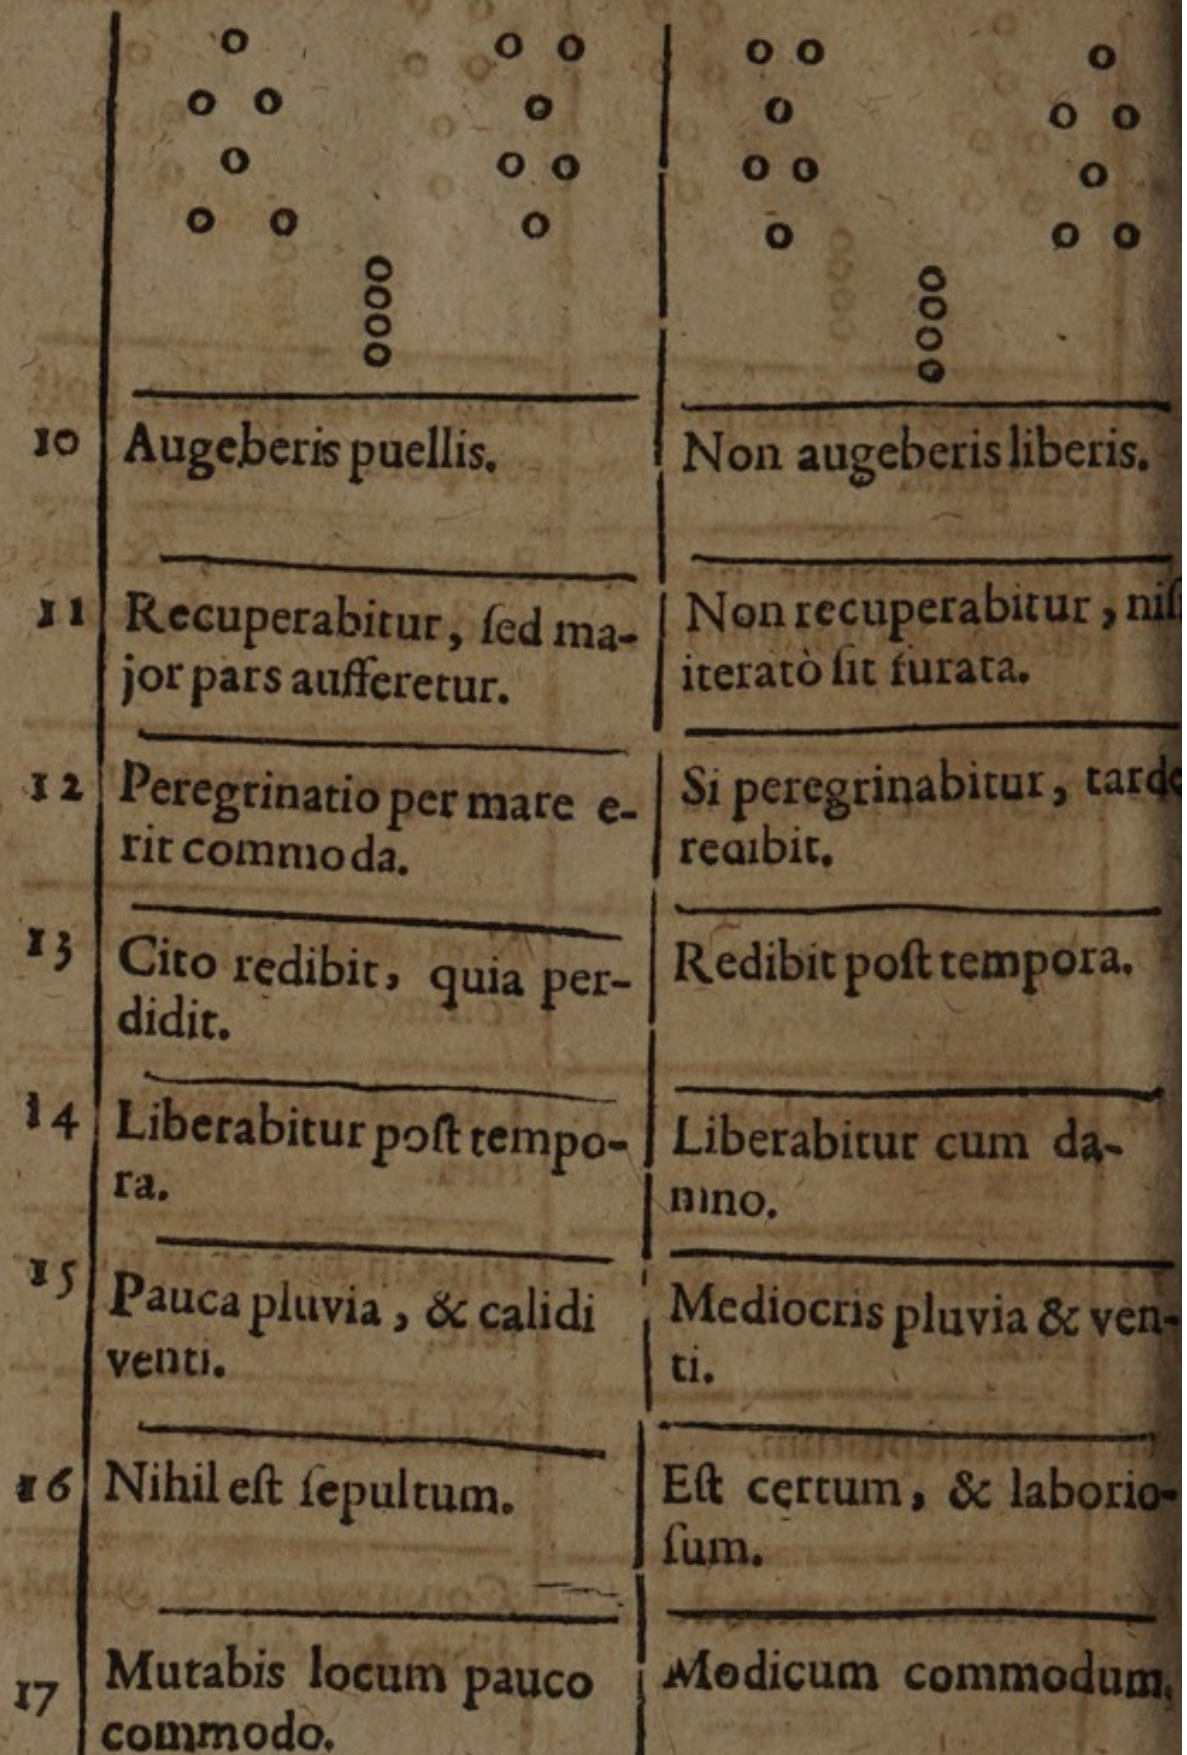 10
Augeberis puellis.
Non augeberis liberis.
11
Recuperabitur, ſed ma-
jor pars aufferetur.
Non recuperabitur, niſi
iteratò ſit furata.
12
Peregrinatio per mare e-
rit commoda.
Si peregrinabitur, tarde
redibit.
13
Cito redibit, quia per-
didit.
Redibit poſt tempora.
14
Liberabitur poſt tempo-
ra.
Liberabitur cum da-
mno.
15
Pauca pluvia, & calidi
venti.
Mediocris pluvia & ven-
ti.
16
Nihil eſt ſepultum.
Eſt certum, & laborio-
ſum.
17
Mutabis locum pauco
commodo.
Modicum commodum.